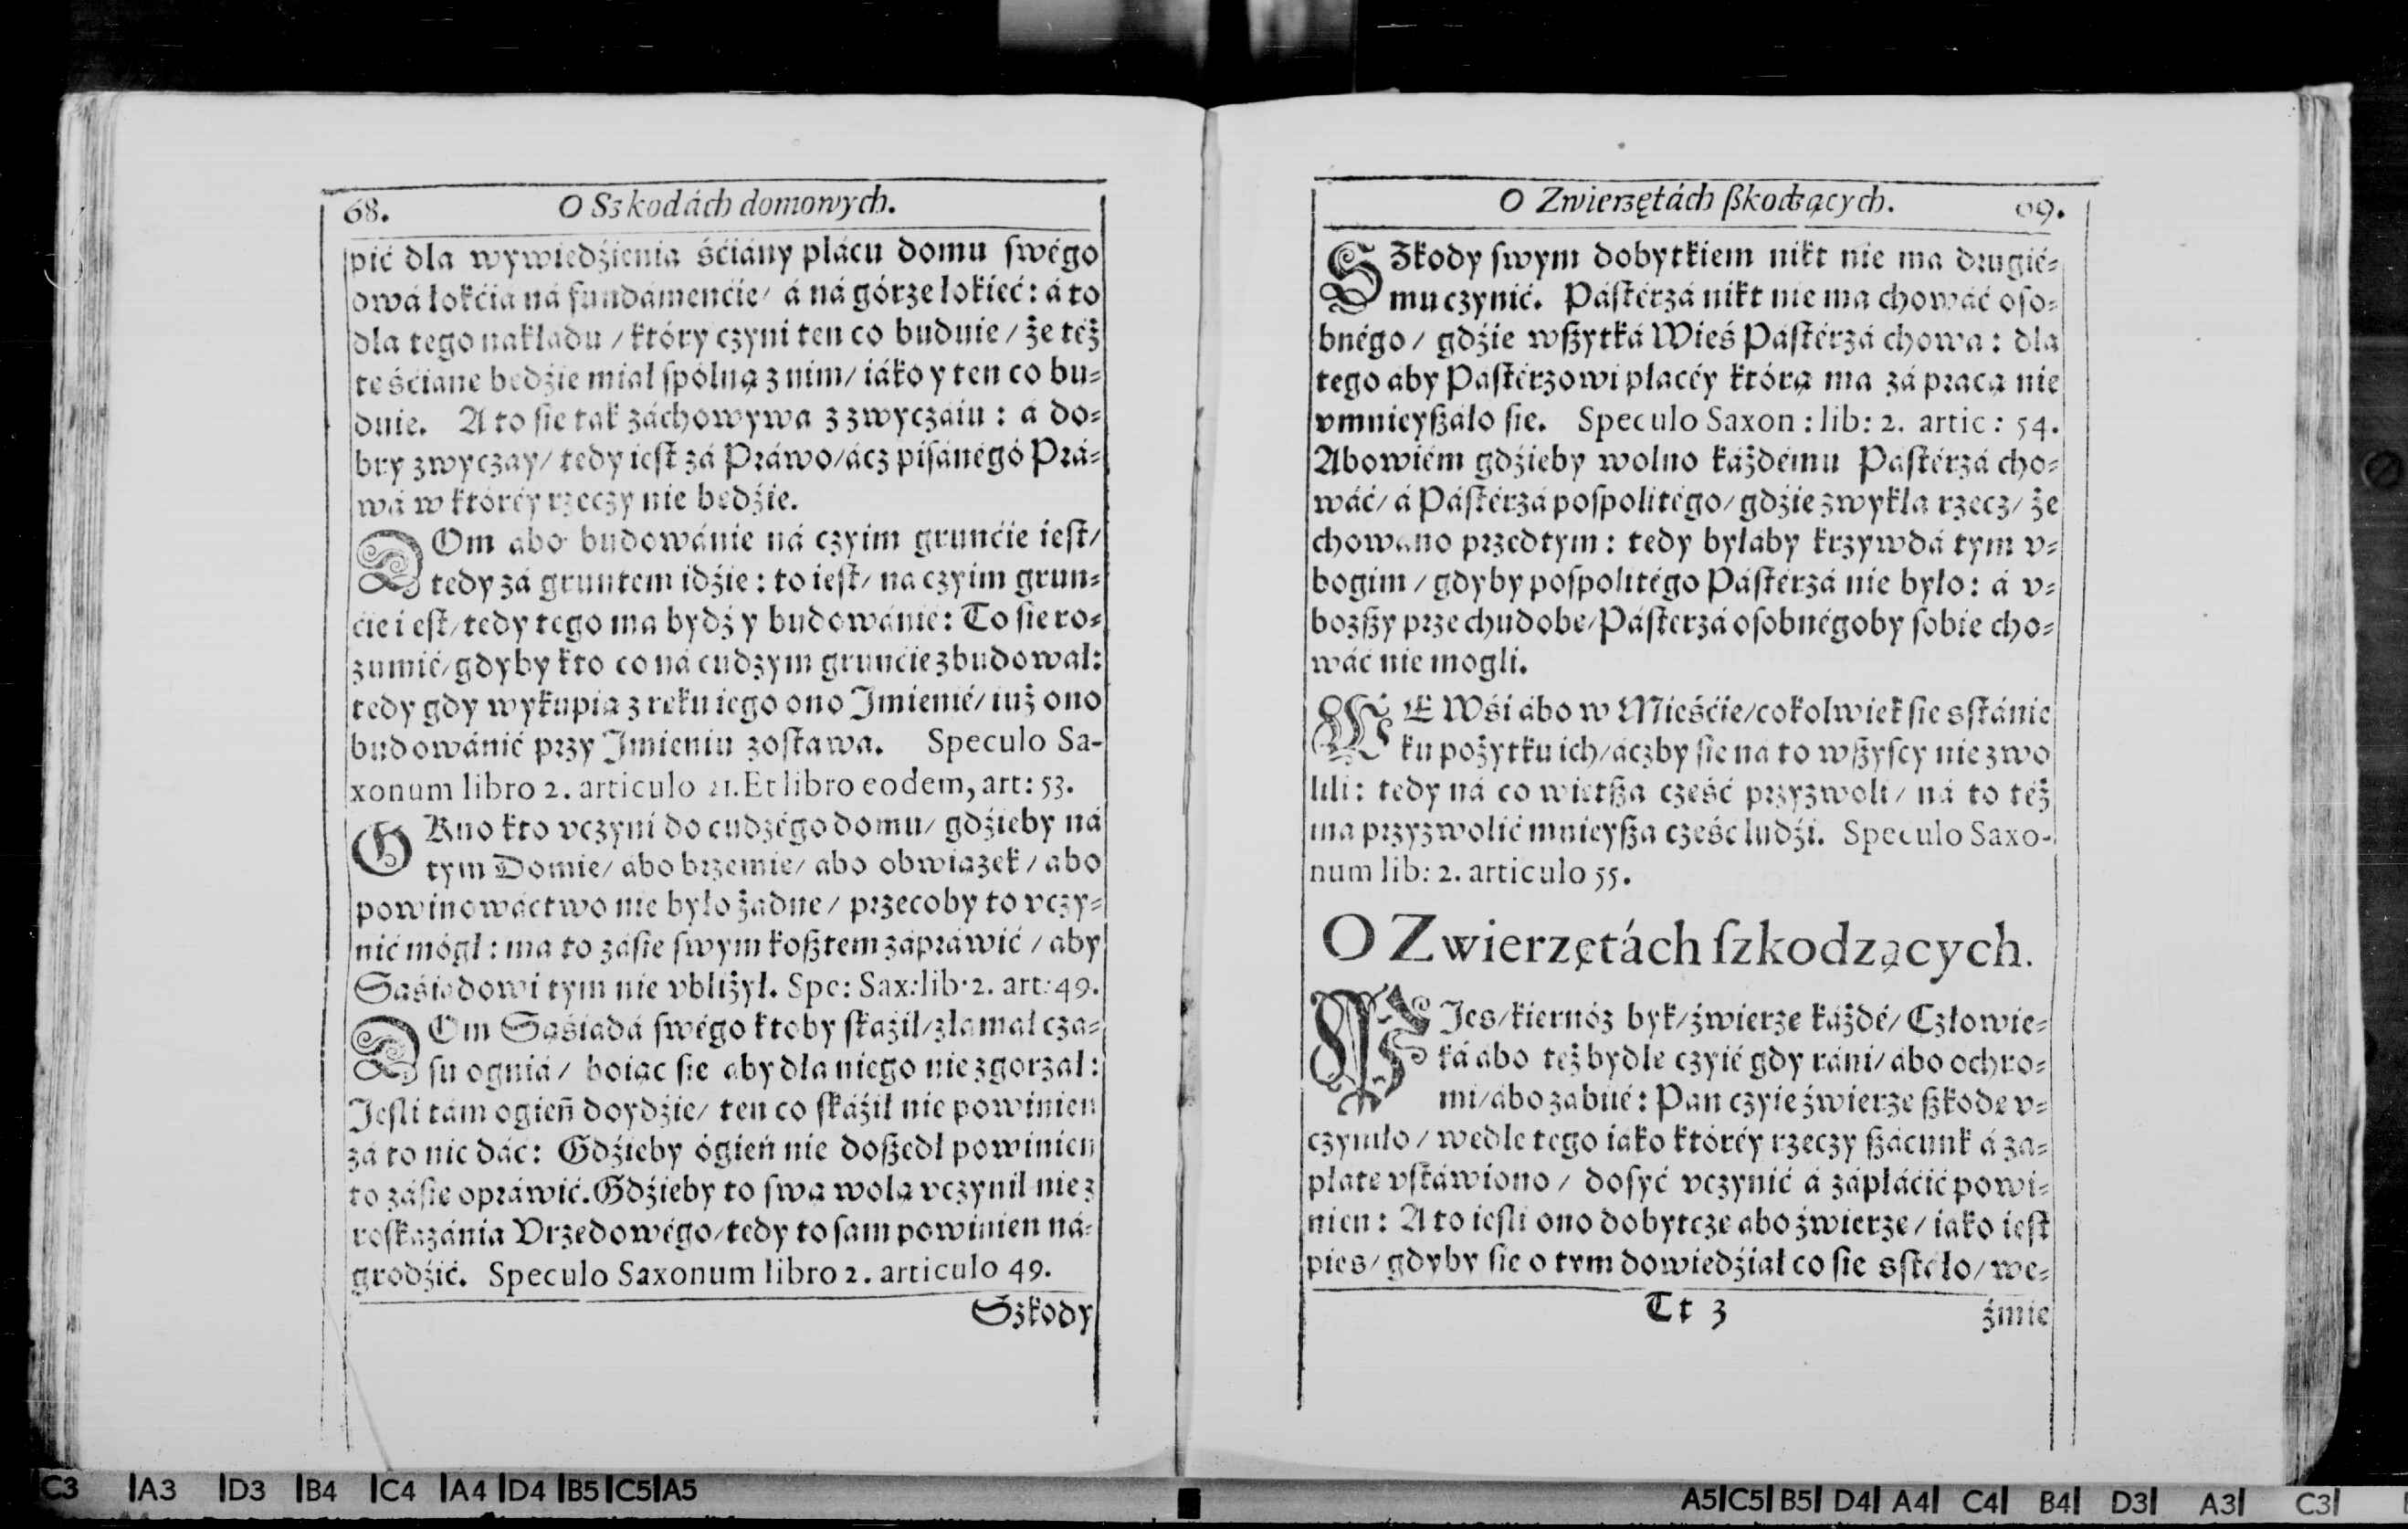 68. O Szkodách domowych.
pić dla wywiedźienia śćiány plácu domu swégo
owá łokćia ná fundámenćie/ á ná górze łokieć: á to
dla tego nakładu / który czyni ten co buduie / że téż
te śćiane bedźie miał spólną z nim/ iáko y ten co bu-
duie. A to sie tak záchowywa z zwyczáiu: á do-
bry zwyczay/ tedy iest zá Práwo/ ácz pisánégó Prá-
wá w któréy rzeczy nie bedźie.
DOm abo budowánie ná czyim grunćie iest/
tedy zá gruntem idźie: to iest/ na czyim grun-
ćie i est/ tedy tego ma bydź y budowánié: To sie ro-
zumié/ gdyby kto co ná cudzym grunćie zbudował:
tedy gdy wykupią z reku iego ono Jmienié/ iuż ono
budowánié przy Jmieniu zostawa. Speculo Sa-
xonum libro 2. articulo 21. Et libro eodem, art: 53.
OKno kto vczyni do cudzégo domu/ gdźieby ná
tym Domie/ ábo brzemie/ abo obwiązek / abo
powinowáctwo nie było żadne / przecoby to vczy-
nić mógł: ma to zásie swym kosztem zápráwić / aby
Sąśiadowi tym nie vbliżył. Spe: Sax: lib. 2. art: 49.
DOm Sąśiadá swégo ktoby skaził/ złamał cza-
su ogniá / boiąc sie aby dla niego nie zgorzał:
Jesli tám ogień doydźie/ ten co skáźił nie powinien
zá to nic dáć: Gdźieby ógień nie doszedł powinien
to zásie opráwić. Gdźieby to swą wolą vczynił nie z
roskazánia Vrzedowégo/ tedy to sam powinien ná-
grodźić. Speculo Saxonum libro 2. articulo 49.
Szkody
O Zwierzętách szkodzących. 69.
SZkody swym dobytkiem nikt nie ma drugié-
mu czynić. Pástérzá nikt nie ma chowáć oso-
bnégo / gdźie wszytká Wieś Pástérzá chowa: dla
tego aby Pastérzowi płacéy którą ma zá pracą nie
vmnieyszáło sie. Speculo Saxon: lib: 2. artic: 54.
Abowiém gdźieby wolno káżdému Pastérzá cho-
wáć/ á Pástérzá pospolitégo/ gdźie zwykła rzecz/ że
chowano przedtym: tedy byłáby krzywdá tym v-
bogim / gdyby pospolitégo Pástérzá nie było: á v-
bozszy prze chudobe/ Pásterzá osobnégoby sobie cho-
wáć nie mogli.
WE Wśi ábo w Mieśćie/ cokolwiek sie sstánie
ku pożytku ich/ áczby sie ná to wszyscy nie zwo
lili: tedy ná co wietsza cześć przyzwoli / ná to téż
ma przyzwolić mnieysza cześć ludźi. Speculo Saxo-
num lib: 2. articulo 55.
O Zwierzętách szkodzących.
PJes/ kiernóz byk/ źwierze káżdé/ Człowie-
ká abo też bydle czyié gdy ráni/ ábo ochro-
mi/ abo zabiié: Pan czyie źwierze szkode v-
czyniło / wedle tego iáko któréy rzeczy szácunk á za-
płate vstáwiono / dosyć vczynić á zápłáćić powi-
nien: A to iesli ono dobytcze abo źwierze / iako iest
pies/ gdyby sie o tym dowiedźiał co sie sstáło/ we-
Tt 3 źmie
C3 A3 D3 B4 C4 A4 D4 B5 C5 A5
A5 C5 B5 D4 A4 C4 B4 D3 A3 C3